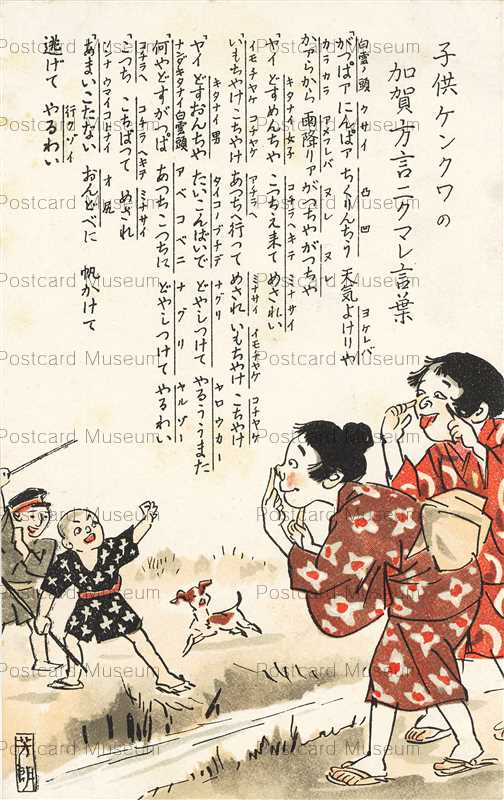 子供ケンクワの
加賀方言ニクマレ言葉
白雲ノ頭 クサイ 凸 凹 ヨケレバ
「がっぱァ にんぱァ ちくりんちう 天気よけりや
カラカラ アメフレバ ヌレ ヌレ
かァらから 雨降リァ がっちやがっちや
キタナイ 女子 コチラヘキテ ミナサイ
「ヤイ どすめんちや こつちえ来て めされい
イモチヤケ コチヤケ アチラヘ ミナサイ イモチヤケ コチヤケ
いもちやけ こちやけ あつちへ行って めされ いもちやけ こちやけ
キタナイ 男 タイコノブチデ ナグリ ヤロウカー
「ヤイ どすおんちや たいこんばいで どやしつけて やるううまた
ナンダキタナイ 白雲頭 アベコベニ ナグリ ヤルゾー
何やどすがっぱ あつちこつちに どやしつけて やるわい
コチラヘ コチラヘキテ ミナサイ
「こつち こちばつて めされ
ソンナ ウマイコトナイ オ尻
「あまいこたない おんどべに 帆かけて
行クゾイ
逃げて やるわい
芳朗
Postcard Museum
www.postcard.com